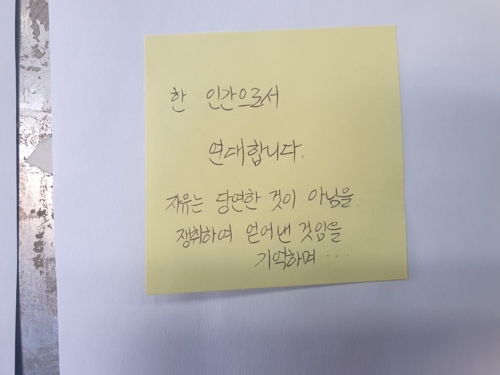 한 인간으로서
연대합니다.
자유는 당연한 것이 아님을
쟁취하여 얻어낸 것임을
기억하며...